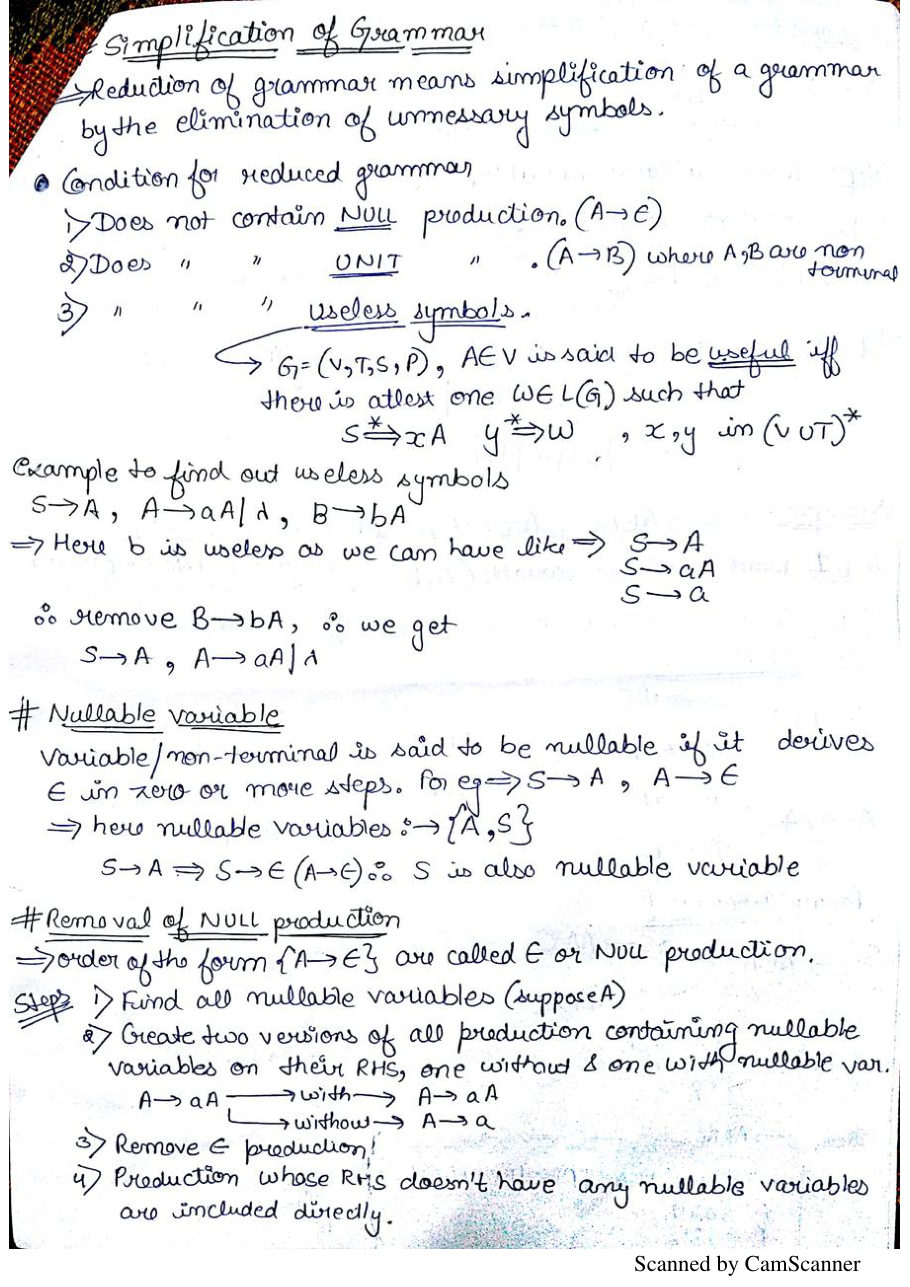 # Simplification of Grammar
⇒ Reduction of grammar means simplification of a grammar
by the elimination of unnessary symbols.
• Condition for reduced grammar
1) Does not contain NULL production. (A→Є)
2) Does " " UNIT " . (A→B) where A,B are non
terminal
3) " " " useless symbols.
→ G=(V,T,S,P), A∈V is said to be useful iff
there is atlest one W∈L(G) such that
S*⇒xA y*⇒W , x,y in (V∪T)*
Example to find out useless symbols
S→A, A→aA|λ, B→bA
⇒ Here b is useless as we can have like ⇒ S→A
S→aA
S→a
∴ remove B→bA, ∴ we get
S→A, A→aA|λ
# Nullable variable
Variable/non-terminal is said to be nullable if it derives
Є in zero or more steps. For eg ⇒ S→A, A→Є
⇒ here nullable variables :→ {A,S}
S→A ⇒ S→Є (A→Є) ∴ S is also nullable variable
# Removal of NULL production
⇒ order of the form {A→Є} are called Є or NULL production.
Steps 1) Fund all nullable variables (suppose A)
2) Create two versions of all production containing nullable
variables on their RHS, one without & one with nullable var.
A→aA →with→ A→aA
→without→ A→a
3) Remove Є production!
4) Production whose RHS doesn't have any nullable variables
are included directly.
Scanned by CamScanner